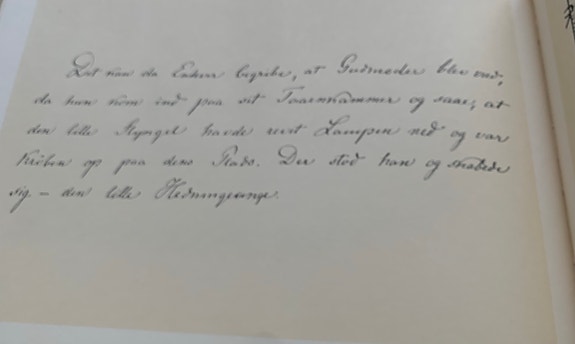 Det kan da Enhver begribe, at Gudmoder blev vred,
da hun kom ind paa sit Taarnkammer og saae, at
den lille Slyngel havde revet Lampen ned og var
krøben op paa dens Plads. Der stod han og skabede
sig – den lille Hedningeunge.